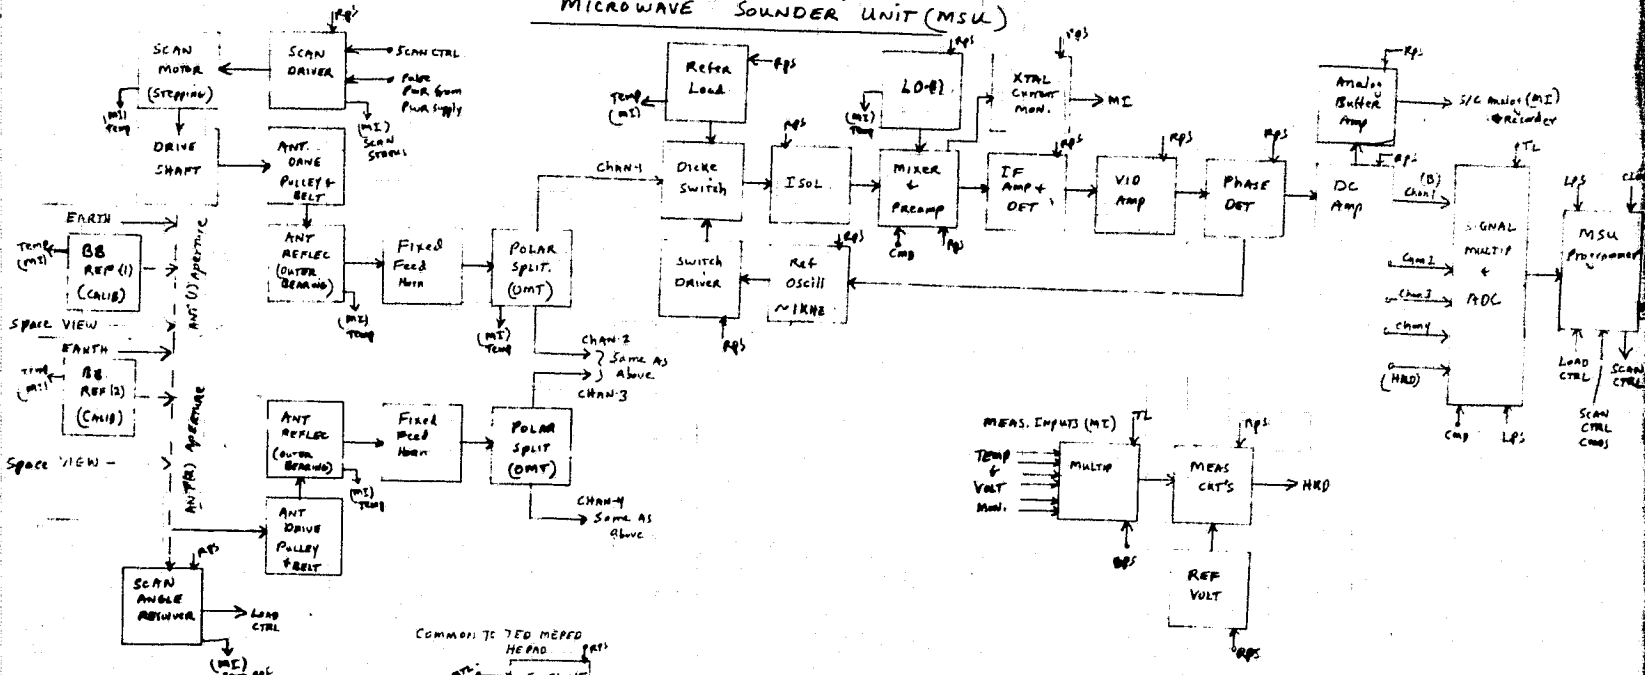 MICROWAVE SOUNDER UNIT (MSU)
RPS
SCAN
MOTOR
(STEPPING)
(MI)
Temp
SCAN
DRIVER
SCAN CTRL
Pulse
PWR From
PWR Supply
(MI)
SCAN
STATUS
DRIVE
SHAFT
ANT.
DRIVE
PULLEY +
BELT
EARTH
Temp
(MI)
BB
REF (1)
(CALIB)
Space VIEW
ANT(1) Aperture
ANT
REFLEC
(OUTER
BEARING)
(MI)
TEMP
Fixed
Feed
Horn
POLAR
SPLIT.
(OMT)
(MI)
TEMP
CHAN-1
CHAN-2
Same As
Above
CHAN-3
EARTH
Temp
(MI)
BB
REF (2)
(CALIB)
Space VIEW -
ANT(2) APERTURE
ANT
REFLEC
(OUTER
BEARING)
(MI)
TEMP
Fixed
Feed
Horn
POLAR
SPLIT
(OMT)
CHAN-4
Same As
Above
ANT
DRIVE
PULLEY
+ BELT
RPS
SCAN
ANGLE
RESOLVER
LOAD
CTRL
(MI)
Refer
Load
RPS
Temp
(MI)
Dicke
Switch
SWITCH
DRIVER
RPS
RPS
ISOL
RPS
Ref
Oscill
~1KHZ
RPS
LO-(1)
(MI)
TEMP
MIXER
+
PREAMP
CMD
RPS
RPS
XTAL
CURRENT
MON.
MI
RPS
IF
AMP +
DET
RPS
VID
Amp
RPS
PHASE
DET
DC
Amp
RPS
RPS
Analog
Buffer
Amp
S/C Analog (MI)
Recorder
(B)
Chan1
Chan2
Chan3
Chan4
(HKD)
TL
SIGNAL
MULTIP
+
ADC
CMD
LPS
LPS
MSU
Programmer
LOAD
CTRL
SCAN
CTRL
SCAN
CTRL
CMDS
MEAS. INPUTS (MI)
TEMP
+
VOLT
MON.
TL
MULTIP
RPS
RPS
MEAS
CKT'S
HKD
REF
VOLT
RPS
COMMON TO TED MEPED
HEPAD
RPS